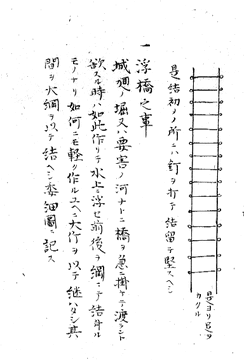 是ヨリ是ヲ
カクル
是結初ノ所ニハ釘ヲ打テ結留テ堅スヘシ
一浮橋之事
城廻ノ堀又ハ要害ノ河ナトニ橋ヲ急ニ掛ケテ渡ラント
欲スル時ハ如此作リテ水上ニ浮セ前後ヲ綱ニテ結付ル
モノナリ如何ニモ軽ク作ルユヘニ大竹ヲ以テ継ハタシ其
間ヲ火綱ヲ以テ結ヘシ委細圖ニ記ス